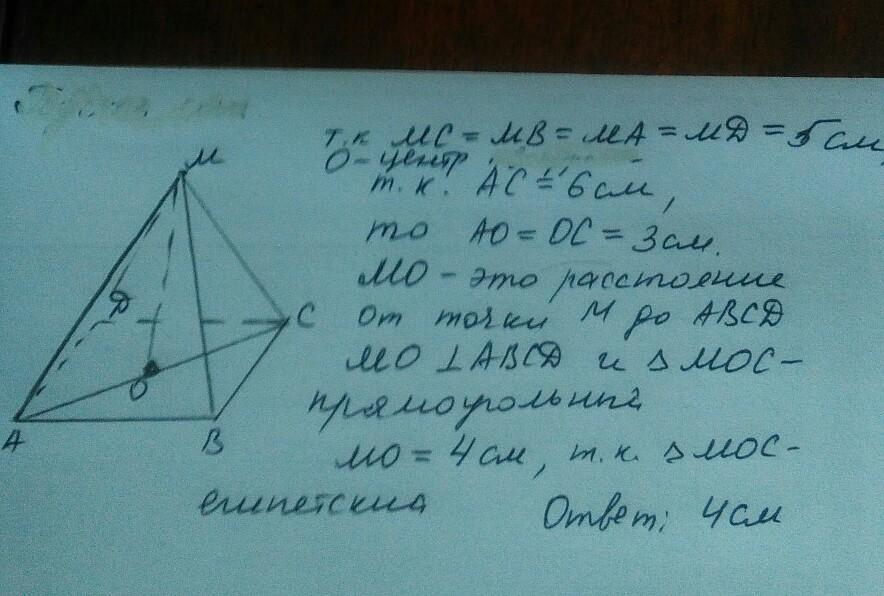 т.к MC = MB = MA = MD = 5 см,
O - центр
т.к. AC = 6 см,
то AO = OC = 3 см.
MO - это расстояние
от точки M до ABCD
MO ⊥ ABCD и △ MOC -
прямоугольный
MO = 4 см, т.к. △ MOC -
египетский
Ответ: 4 см
M
D
C
O
A
B